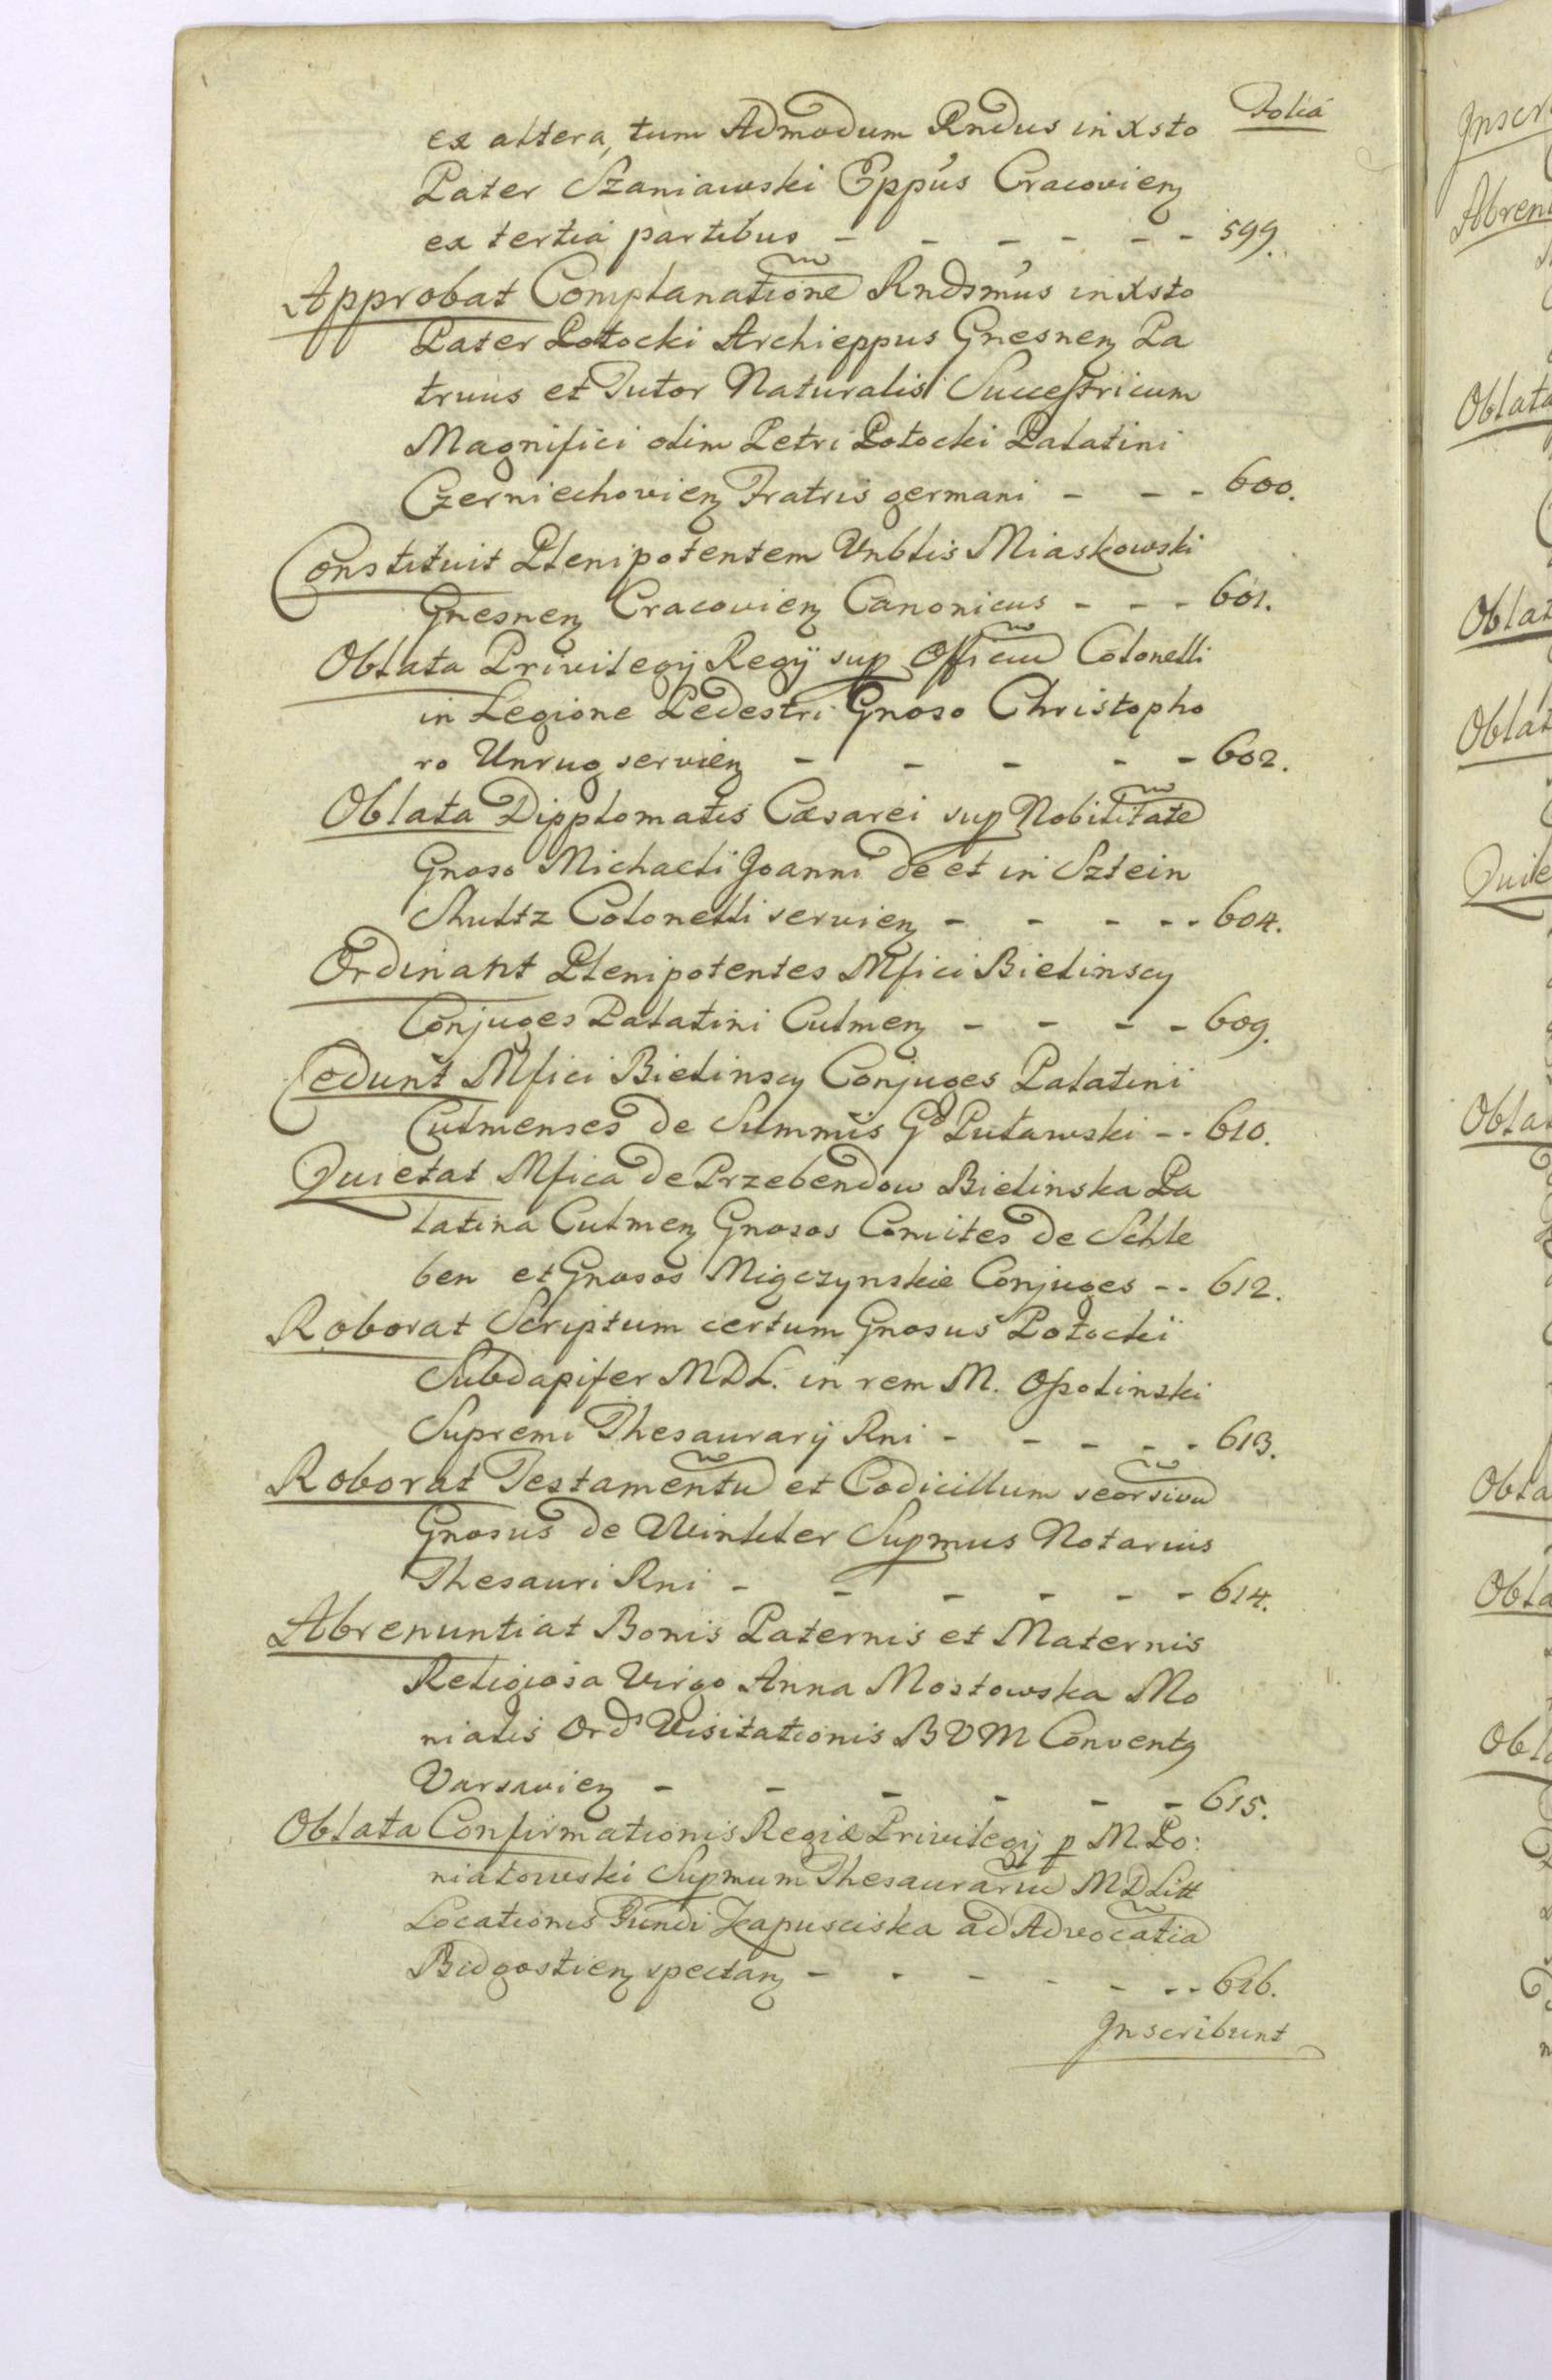 Folia
ex altera, tum Admodum Rndus in Xsto
Pater Szaniawski Eppus Cracovien
ex tertia partibus - - - - - - 599.
Approbat Complanatione Rndsmus in Xsto
Pater Potocki Archieppus Gnesnen Pa
truus et Tutor Naturalis Successricum
Magnifici olim Petri Potocki Palatini
Czerniechovien Fratris germani - - - 600.
Constituit Plenipotentem Vnblis Miaskowski
Gnesnen Cracovien Canonicus - - - 601.
Oblata Privilegij Regij sup Officiu Colonelli
in Legione Pedestri Gnoso Christopho
ro Unrug servien - - - - - 602.
Oblata Dipplomatis Cæsarei sup Nobilitate
Gnoso Michaeli Joanni de et in Sztein
Shultz Colonelli servien - - - - - 604.
Ordinant Plenipotentes Mfici Bielinscy
Conjuges Palatini Culmen - - - - 609.
Cedunt Mfici Bielinscy Conjuges Palatini
Culmenses de Summis Gd Puławski - - 610.
Quietat Mfica de Przebendow Bielinska Pa
latina Culmen Gnosos Comites de Schle
ben et Gnosos Migczynskie Conjuges - - 612.
Roborat Scriptum certum Gnosus Potocki
Subdapifer MDL. in rem M. Ossolinski
Supremi Thesaurarij Rni - - - - - 613.
Roborat Testamentu et Codicillum seorsivu
Gnosus de Winkler Supmus Notarius
Thesauri Rni - - - - - - 614.
Abrenuntiat Bonis Paternis et Maternis
Religiosa Virgo Anna Mostowska Mo
nialis Ord Visitationis BVM Conventq
Varsavien - - - - - - 615.
Oblata Confirmationis Regiæ Privilegij p M. Po:
niatowski Supmum Thesaurariu MDLitt
Locationis Fundi Zapusciska ad Advocatia
Bidgostien spectan - - - - - - - 616.
Inscribunt
Abren
Oblata
Oblat
Oblat
Quie
Oblat
Obla
Obla
Obla